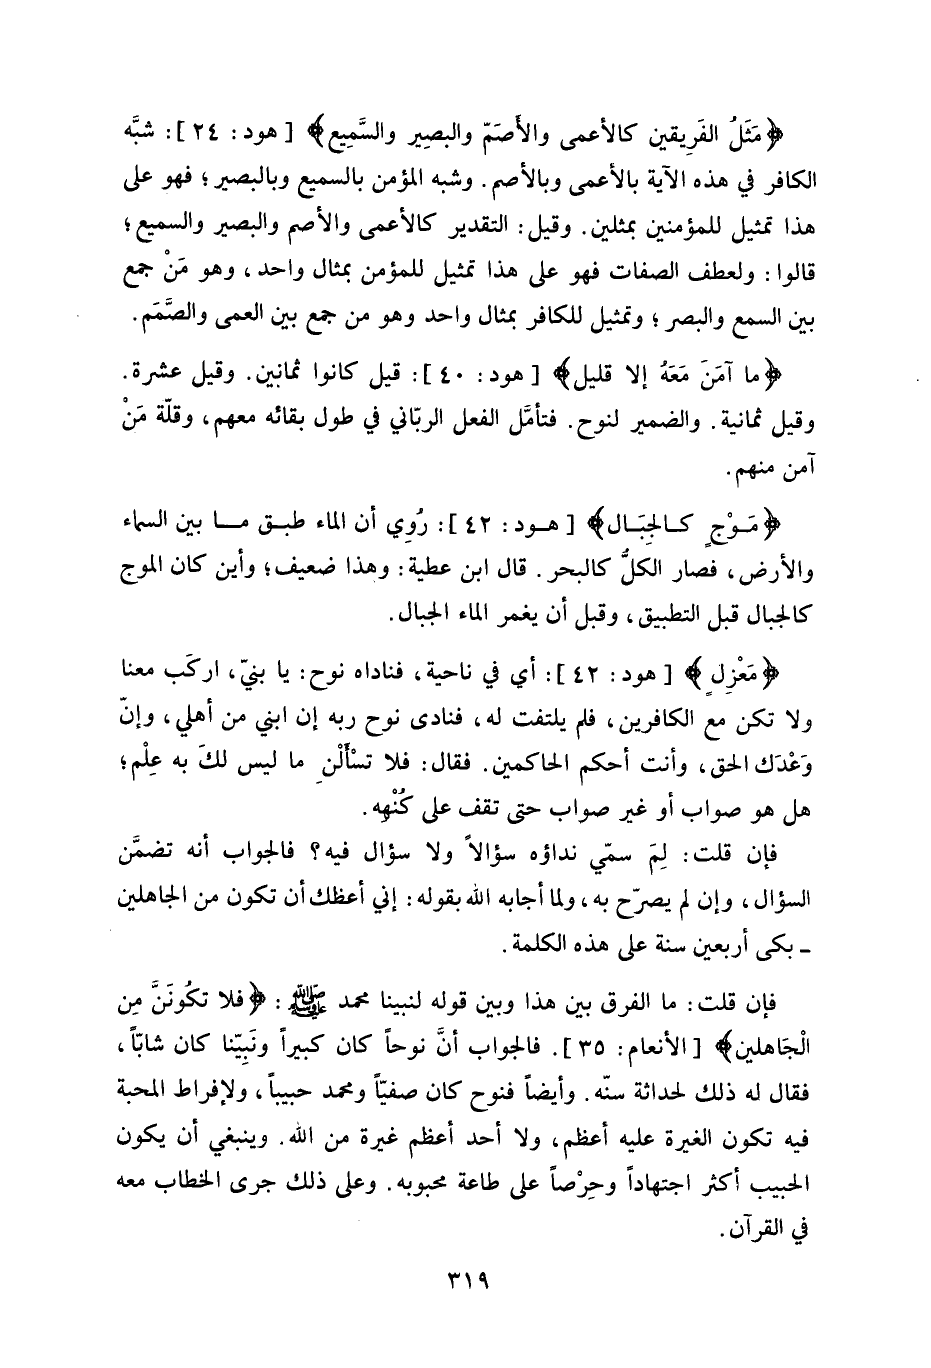 ﴿مَثَلُ الفَرِيقين كالأعمى والأَصَمّ والبصِير والسَّمِيع﴾ [هود: ٢٤]: شبَّه
الكافر في هذه الآية بالأعمى وبالأصم. وشبه المؤمن بالسميع وبالبصير؛ فهو على
هذا تمثيل للمؤمنين بمثلين. وقيل: التقدير كالأعمى والأصم والبصير والسميع؛
قالوا: ولعطف الصفات فهو على هذا تمثيل للمؤمن بمثال واحد، وهو مَنْ جمع
بين السمع والبصر؛ وتمثيل للكافر بمثال واحد وهو من جمع بين العمى والصَّمَم.
﴿ما آمَنَ مَعَهُ إلا قليل﴾ [هود: ٤٠]: قيل كانوا ثمانين. وقيل عشرة.
وقيل ثمانية. والضمير لنوح. فتأمَّل الفعل الربّاني في طول بقائه معهم، وقلّة مَنْ
آمن منهم.
﴿مَوْجٍ كالجِبَال﴾ [هود: ٤٢]: رُوِي أن الماء طبق ما بين السماء
والأرض، فصار الكلُّ كالبحر. قال ابن عطية: وهذا ضعيف؛ وأين كان الموج
كالجبال قبل التطبيق، وقبل أن يغمر الماء الجبال.
﴿مَعْزِلٍ﴾ [هود: ٤٢]: أي في ناحية، فناداه نوح: يا بنيّ، اركَب معنا
ولا تكن مع الكافرين، فلم يلتفت له، فنادى نوح ربه إن ابني من أهلي، وإنّ
وَعْدَك الحق، وأنت أحكم الحاكمين. فقال: فلا تسْأَلْنِ ما ليس لكَ به عِلْم؛
هل هو صواب أو غير صواب حتى تقف على كُنْهِه.
فإن قلت: لِمَ سمّي نداؤه سؤالاً ولا سؤال فيه؟ فالجواب أنه تضمَّن
السؤال، وإن لم يصرّح به، ولما أجابه الله بقوله: إني أعظك أن تكون من الجاهلين
ـ بكى أربعين سنة على هذه الكلمة.
فإن قلت: ما الفرق بين هذا وبين قوله لنبينا محمد ﷺ: ﴿فلا تكُونَنَّ مِن
الْجَاهلين﴾ [الأنعام: ٣٥]. فالجواب أنَّ نوحاً كان كبيراً ونَبِيّنا كان شابّاً،
فقال له ذلك لحداثة سنّه. وأيضاً فنوح كان صفيّاً ومحمد حبيباً، ولإفراط المحبة
فيه تكون الغيرة عليه أعظم، ولا أحد أعظم غيرة من الله. وينبغي أن يكون
الحبيب أكثر اجتهاداً وحِرْصاً على طاعة محبوبه. وعلى ذلك جرى الخطاب معه
في القرآن.
٣١٩